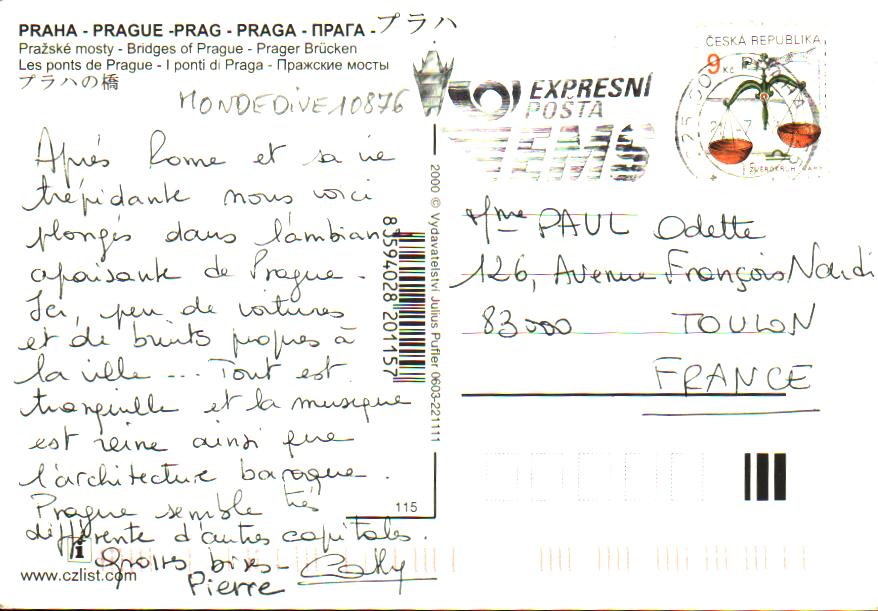 PRAHA - PRAGUE -PRAG - PRAGA - ПРАГА - プラハ
Pražské mosty - Bridges of Prague - Prager Brücken
Les ponts de Prague - I ponti di Praga - Пражские мосты
プラハの橋
MONDEDIVE10876
Après Rome et sa vie
trépidante nous voici
plongés dans l'ambiance
apaisante de Prague.
Ici, peu de voitures
et de bruits propres à
la ville ... Tout est
tranquille et la musique
est reine ainsi que
l'architecture baroque.
Prague semble très
différente d'autres capitales.
Grosses bises-
Pierre Cathy
www.czlist.com
8594028 201157
2000 © Vydavatelství Julius Pufler 0603-221111
115
EXPRESNÍ
POŠTA
EMS
ČESKÁ REPUBLIKA
9 Kč
ZVĚROKRUH - VÁHY
Mme PAUL Odette
126, Avenue François Nardi
83000 TOULON
FRANCE